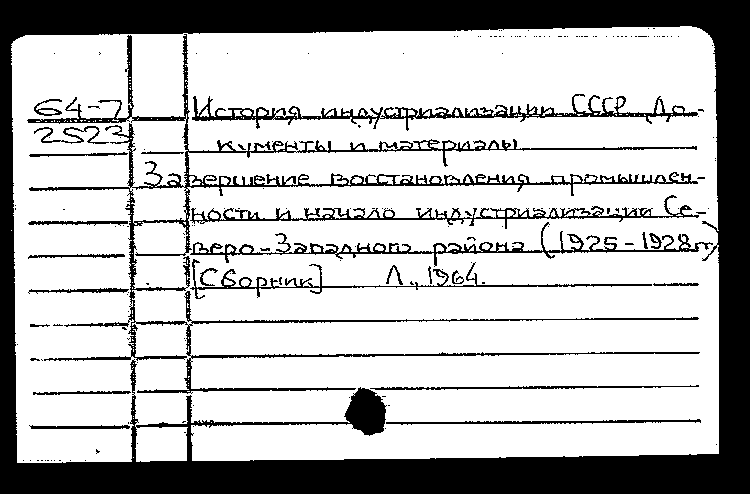 64-7 История индустриализации СССР. До-
2523 кументы и материалы
Завершение восстановления промышлен-
ности и начало индустриализации Се-
веро-Западного района (1925-1928гг)
[Сборник] Л., 1964.